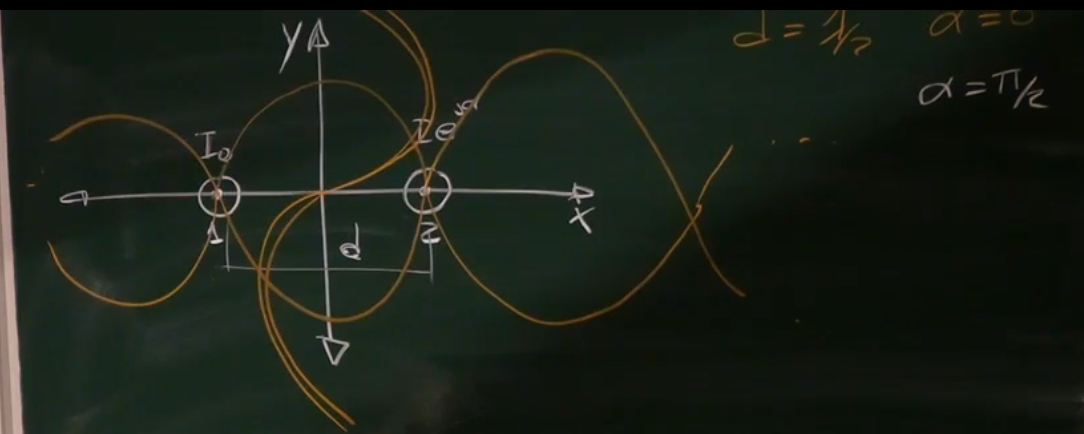 d = λ/2 α = 0
α = π/2
y
I₀
I e^jα
x
1
2
d